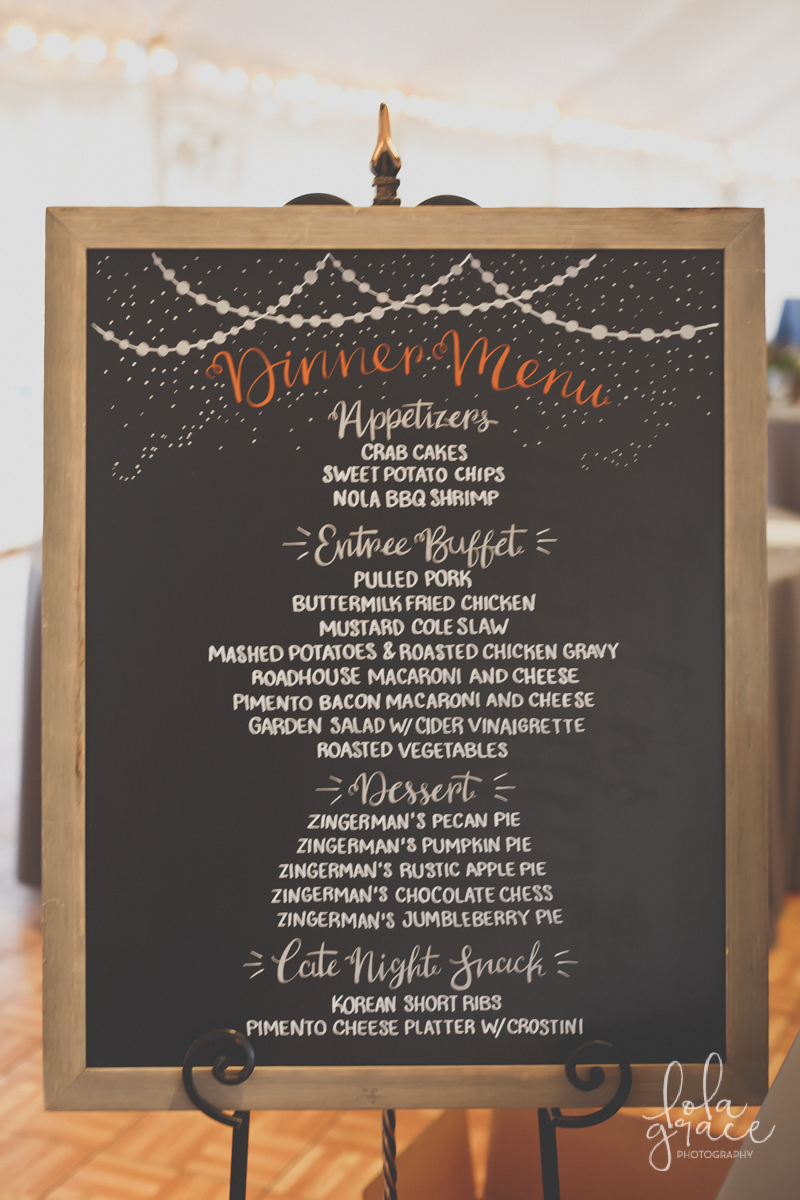 Dinner Menu
Appetizers
CRAB CAKES
SWEET POTATO CHIPS
NOLA BBQ SHRIMP
Entree Buffet
PULLED PORK
BUTTERMILK FRIED CHICKEN
MUSTARD COLE SLAW
MASHED POTATOES & ROASTED CHICKEN GRAVY
ROADHOUSE MACARONI AND CHEESE
PIMENTO BACON MACARONI AND CHEESE
GARDEN SALAD W/ CIDER VINAIGRETTE
ROASTED VEGETABLES
Dessert
ZINGERMAN'S PECAN PIE
ZINGERMAN'S PUMPKIN PIE
ZINGERMAN'S RUSTIC APPLE PIE
ZINGERMAN'S CHOCOLATE CHESS
ZINGERMAN'S JUMBLEBERRY PIE
Late Night Snack
KOREAN SHORT RIBS
PIMENTO CHEESE PLATTER W/ CROSTINI
lola
grace
PHOTOGRAPHY